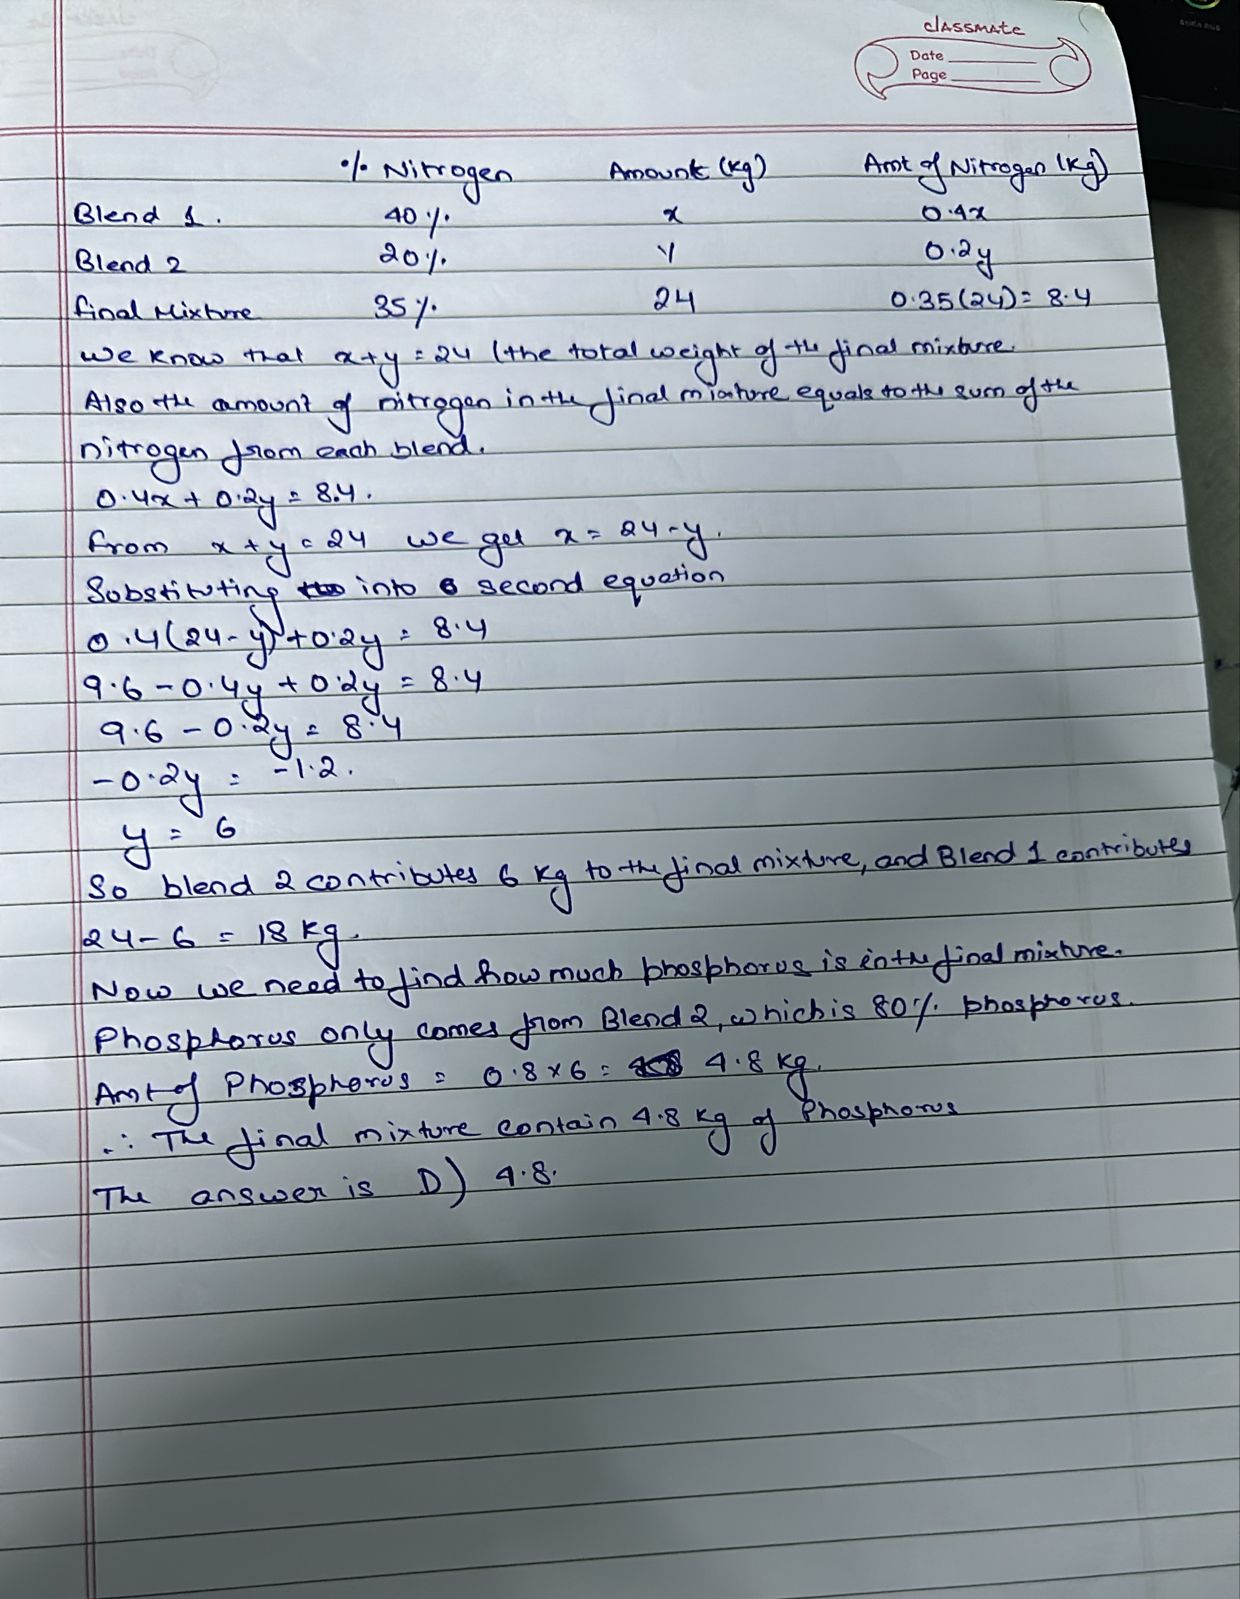 classmate
Date
Page
% Nitrogen Amount (kg) Amt of Nitrogen (kg)
Blend 1. 40%. x 0.4x
Blend 2 20%. y 0.2y
final Mixture 35%. 24 0.35(24) = 8.4
we know that x+y = 24 (the total weight of the final mixture.
Also the amount of nitrogen in the final mixture equals to the sum of the
nitrogen from each blend.
0.4x + 0.2y = 8.4.
from x + y = 24 we get x = 24-y.
Substituting into second equation
0.4(24-y)+0.2y = 8.4
9.6 - 0.4y + 0.2y = 8.4
9.6 - 0.2y = 8.4
-0.2y = -1.2.
y = 6
So blend 2 contributes 6 kg to the final mixture, and Blend 1 contributes
24-6 = 18 kg.
Now we need to find how much phosphorus is in the final mixture.
Phosphorus only comes from Blend 2, which is 80% phosphorus.
Amt of Phosphorus = 0.8 x 6 = 4.8 kg.
∴ The final mixture contain 4.8 kg of Phosphorus
The answer is D) 4.8.